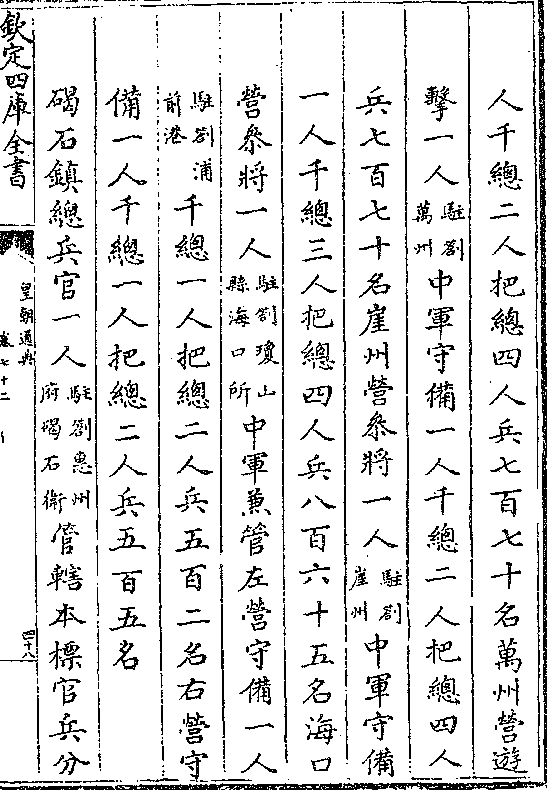 人千總二人把總四人兵七百七十名萬州營遊
擊一人駐劄萬州中軍守備一人千總二人把總四人
兵七百七十名崖州營叅將一人駐劄崖州中軍守備
一人千總三人把總四人兵八百六十五名海口
營叅將一人駐劄瓊山縣海口所中軍兼管左營守備一人
駐劄浦前港千總一人把總二人兵五百二名右營守
備一人千總一人把總二人兵五百五名
碣石鎮總兵官一人駐劄惠州府碣石衞管轄本標官兵分
欽定四庫全書
皇朝通典
卷七十二
四十八